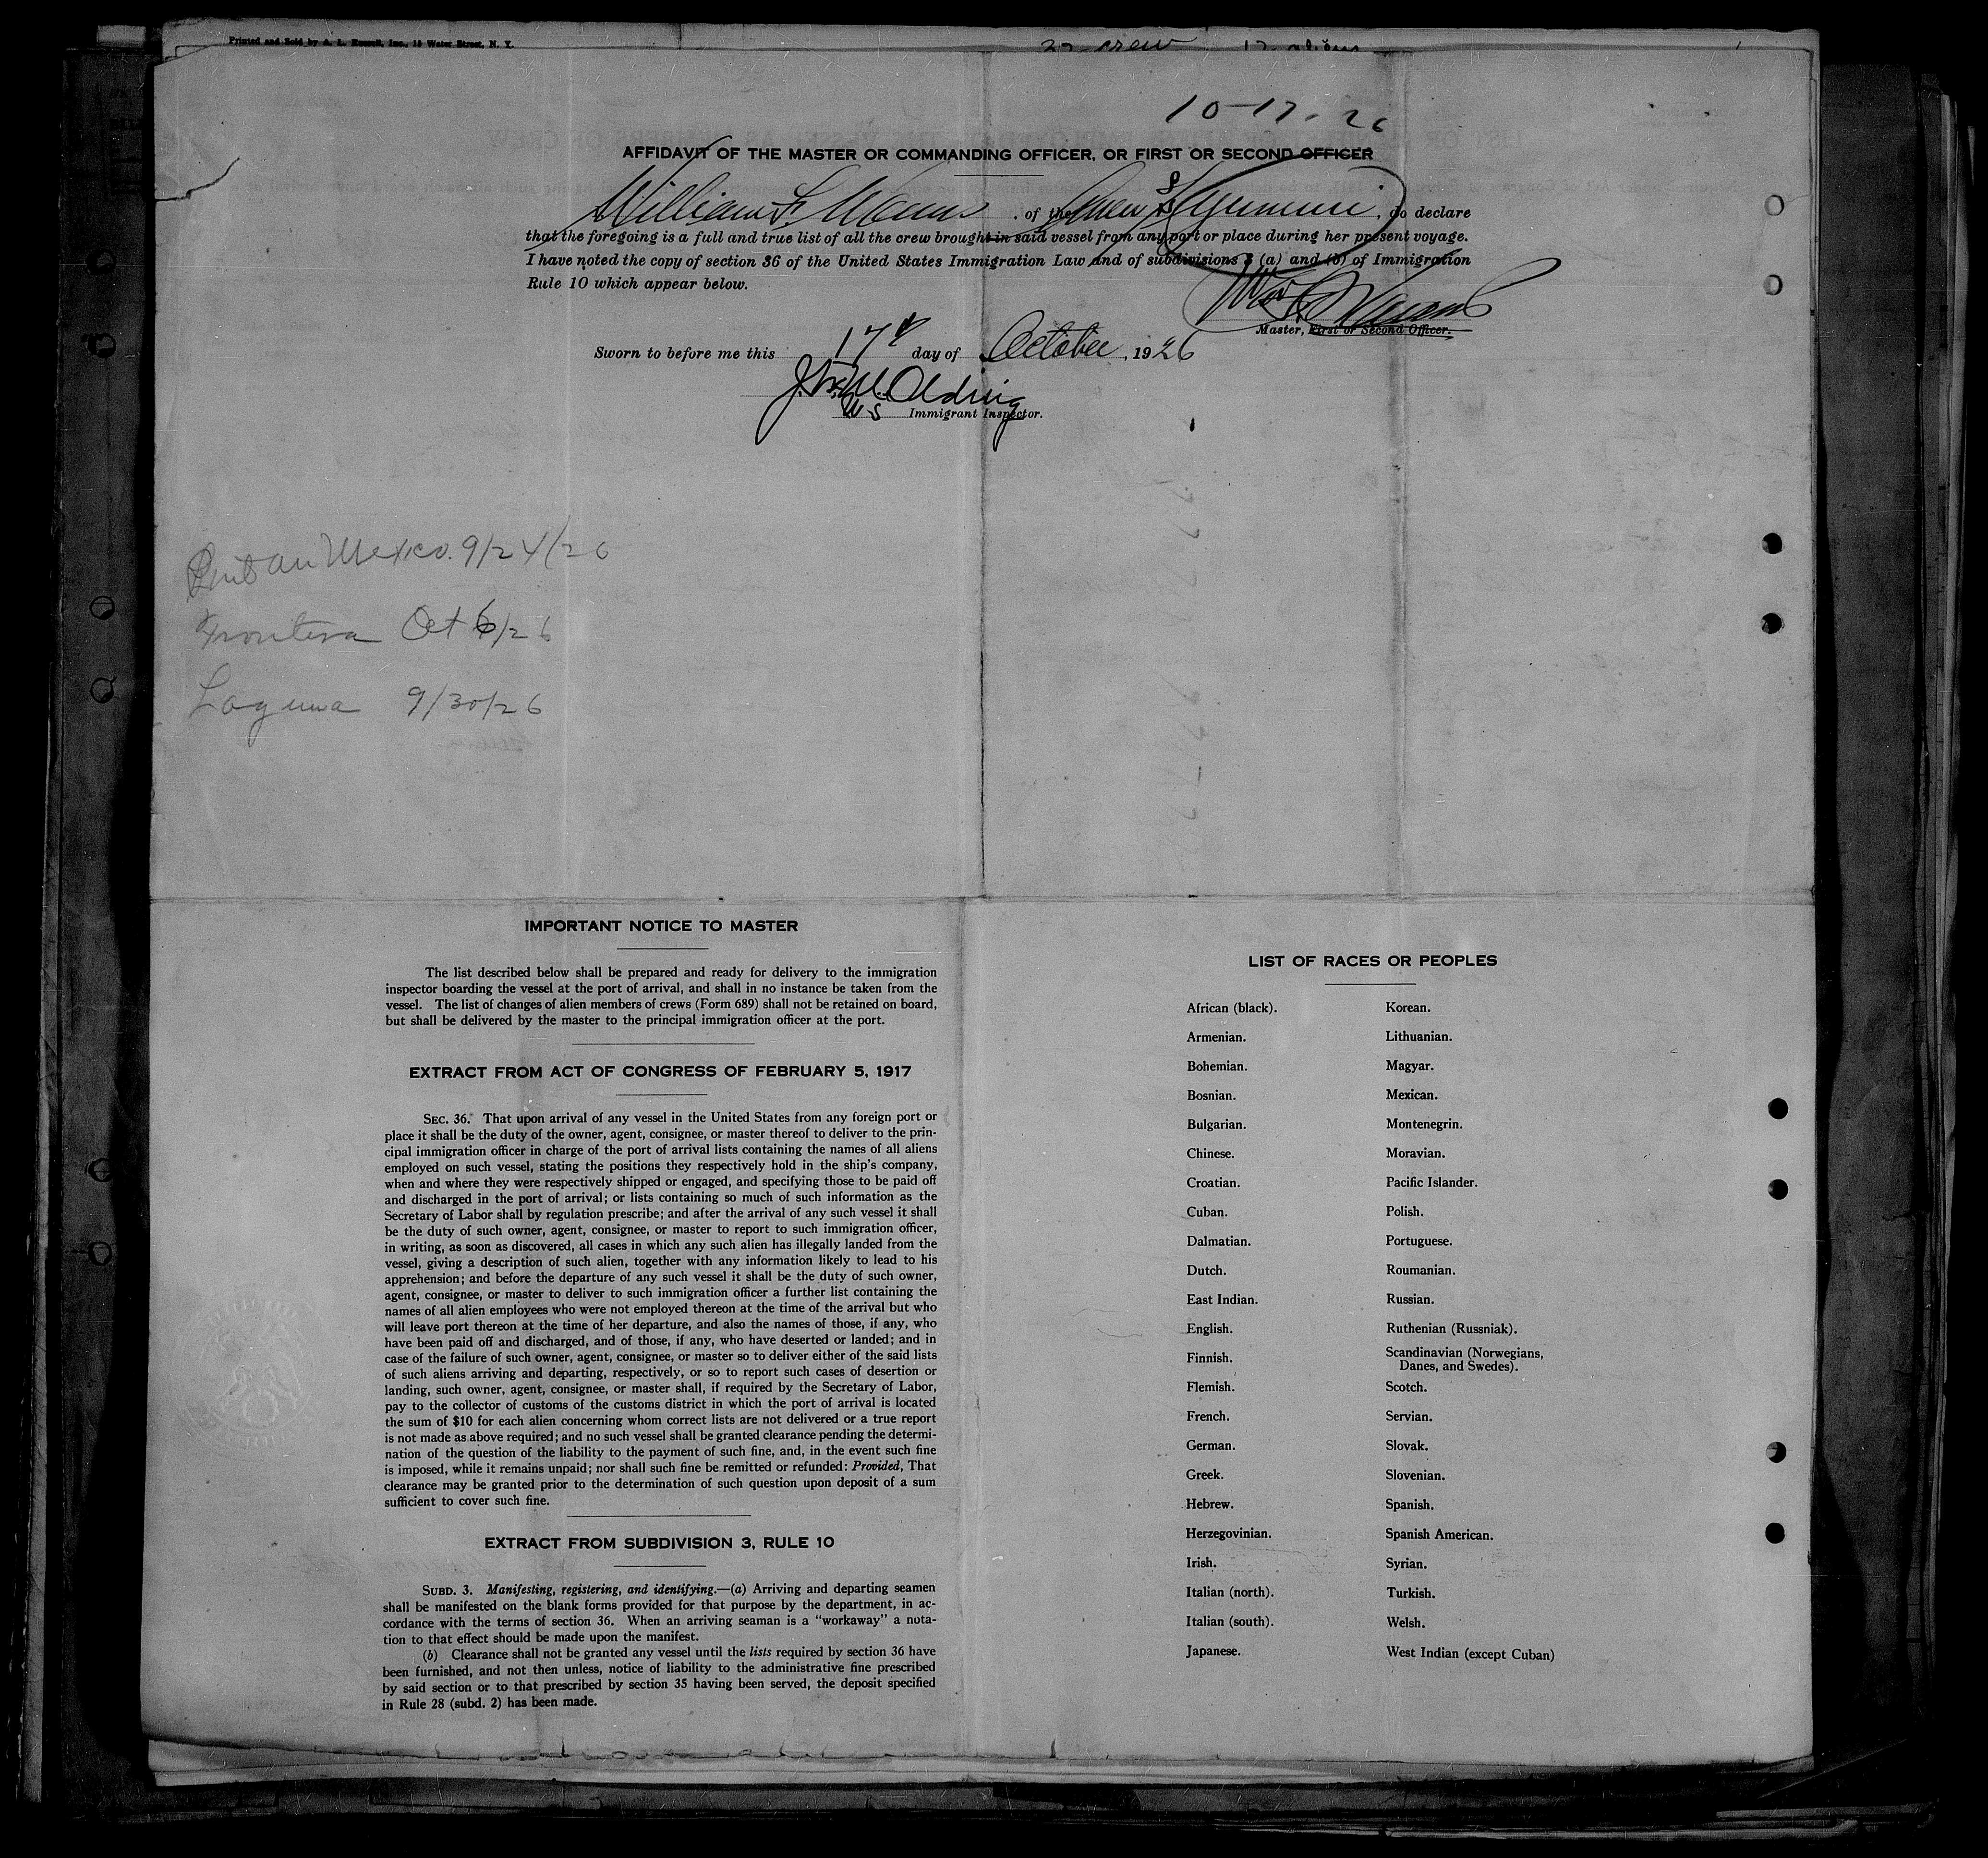 Printed and Sold by A. L. Russell, Inc., 15 Water Street, N. Y.
crew 12 aliens
10-17-26
AFFIDAVIT OF THE MASTER OR COMMANDING OFFICER, OR FIRST OR SECOND OFFICER
William F. , of the , do declare
that the foregoing is a full and true list of all the crew brought in said vessel from any port or place during her present voyage.
I have noted the copy of section 36 of the United States Immigration Law and of subdivisions 3 (a) and (b) of Immigration
Rule 10 which appear below.
Master, First or Second Officer.
Sworn to before me this 17th day of October, 1926
US Immigrant Inspector.
Mexico. 9/24/26
Frontera Oct 6/26
Laguna 9/30/26
IMPORTANT NOTICE TO MASTER
The list described below shall be prepared and ready for delivery to the immigration
inspector boarding the vessel at the port of arrival, and shall in no instance be taken from the
vessel. The list of changes of alien members of crews (Form 689) shall not be retained on board,
but shall be delivered by the master to the principal immigration officer at the port.
EXTRACT FROM ACT OF CONGRESS OF FEBRUARY 5, 1917
SEC. 36. That upon arrival of any vessel in the United States from any foreign port or
place it shall be the duty of the owner, agent, consignee, or master thereof to deliver to the prin-
cipal immigration officer in charge of the port of arrival lists containing the names of all aliens
employed on such vessel, stating the positions they respectively hold in the ship's company,
when and where they were respectively shipped or engaged, and specifying those to be paid off
and discharged in the port of arrival; or lists containing so much of such information as the
Secretary of Labor shall by regulation prescribe; and after the arrival of any such vessel it shall
be the duty of such owner, agent, consignee, or master to report to such immigration officer,
in writing, as soon as discovered, all cases in which any such alien has illegally landed from the
vessel, giving a description of such alien, together with any information likely to lead to his
apprehension; and before the departure of any such vessel it shall be the duty of such owner,
agent, consignee, or master to deliver to such immigration officer a further list containing the
names of all alien employees who were not employed thereon at the time of the arrival but who
will leave port thereon at the time of her departure, and also the names of those, if any, who
have been paid off and discharged, and of those, if any, who have deserted or landed; and in
case of the failure of such owner, agent, consignee, or master so to deliver either of the said lists
of such aliens arriving and departing, respectively, or so to report such cases of desertion or
landing, such owner, agent, consignee, or master shall, if required by the Secretary of Labor,
pay to the collector of customs of the customs district in which the port of arrival is located
the sum of $10 for each alien concerning whom correct lists are not delivered or a true report
is not made as above required; and no such vessel shall be granted clearance pending the determi-
nation of the question of the liability to the payment of such fine, and, in the event such fine
is imposed, while it remains unpaid; nor shall such fine be remitted or refunded: Provided, That
clearance may be granted prior to the determination of such question upon deposit of a sum
sufficient to cover such fine.
EXTRACT FROM SUBDIVISION 3, RULE 10
SUBD. 3. Manifesting, registering, and identifying.—(a) Arriving and departing seamen
shall be manifested on the blank forms provided for that purpose by the department, in ac-
cordance with the terms of section 36. When an arriving seaman is a "workaway" a nota-
tion to that effect should be made upon the manifest.
(b) Clearance shall not be granted any vessel until the lists required by section 36 have
been furnished, and not then unless, notice of liability to the administrative fine prescribed
by said section or to that prescribed by section 35 having been served, the deposit specified
in Rule 28 (subd. 2) has been made.
LIST OF RACES OR PEOPLES
African (black). Korean.
Armenian. Lithuanian.
Bohemian. Magyar.
Bosnian. Mexican.
Bulgarian. Montenegrin.
Chinese. Moravian.
Croatian. Pacific Islander.
Cuban. Polish.
Dalmatian. Portuguese.
Dutch. Roumanian.
East Indian. Russian.
English. Ruthenian (Russniak).
Finnish. Scandinavian (Norwegians,
Danes, and Swedes).
Flemish. Scotch.
French. Servian.
German. Slovak.
Greek. Slovenian.
Hebrew. Spanish.
Herzegovinian. Spanish American.
Irish. Syrian.
Italian (north). Turkish.
Italian (south). Welsh.
Japanese. West Indian (except Cuban)